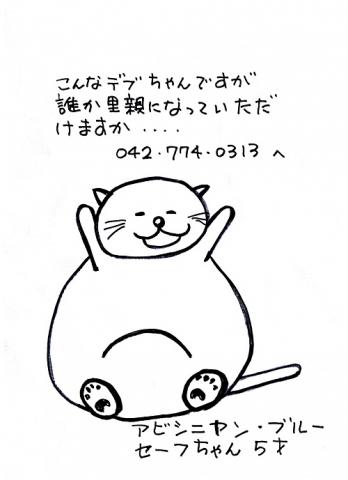 こんなデブちゃんですが
誰か里親になっていただ
けますか ････
042･774･0313 へ
アビシニヤン・ブルー
セーフちゃん 5才